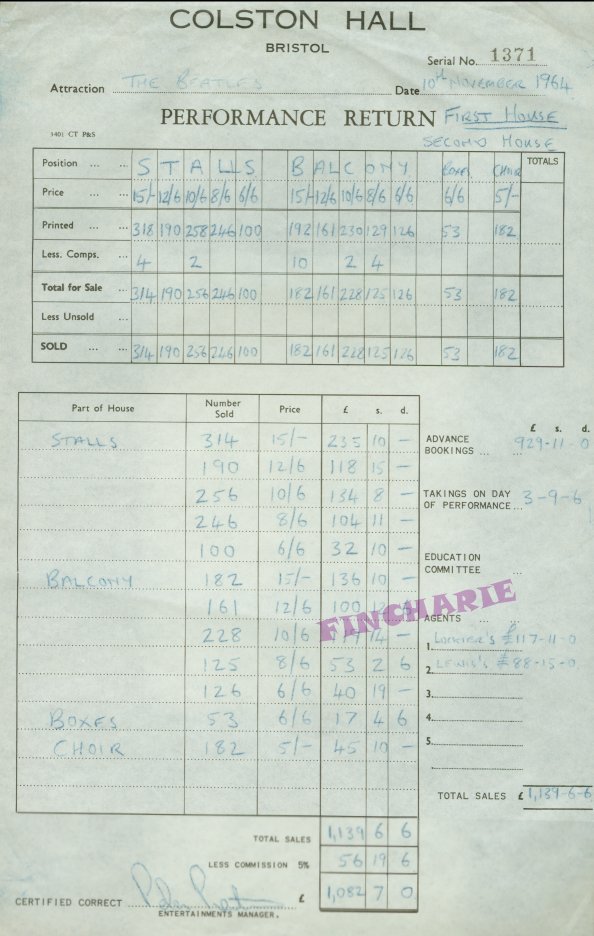 COLSTON HALL
BRISTOL
Serial No. 1371
Attraction THE BEATLES Date 10th NOVEMBER 1964
PERFORMANCE RETURN FIRST HOUSE
SECOND HOUSE
1401 CT P&S
Position ... ... STALLS BALCONY BOXES CHOIR TOTALS
Price ... ... 15/- 12/6 10/6 8/6 6/6 15/- 12/6 10/6 8/6 6/6 6/6 5/-
Printed ... ... 318 190 258 246 100 192 161 230 129 126 53 182
Less. Comps. ... ... 4 2 10 2 4
Total for Sale ... 314 190 256 246 100 182 161 228 125 126 53 182
Less Unsold ...
SOLD ... ... 314 190 256 246 100 182 161 228 125 126 53 182
Part of House Number Sold Price £ s. d.
STALLS 314 15/- 235 10 -
190 12/6 118 15 -
256 10/6 134 8 -
246 8/6 104 11 -
100 6/6 32 10 -
BALCONY 182 15/- 136 10 -
161 12/6 100
228 10/6 14 -
125 8/6 53 2 6
126 6/6 40 19 -
BOXES 53 6/6 17 4 6
CHOIR 182 5/- 45 10 -
FINCHARIE
TOTAL SALES 1,139 6 6
LESS COMMISSION 5% 56 19 6
£ 1,082 7 0
£ s. d.
ADVANCE
BOOKINGS ... 929-11-0
TAKINGS ON DAY
OF PERFORMANCE... 3-9-6
EDUCATION
COMMITTEE ...
AGENTS ...
1. LOCKIER'S £117-11-0
2. LEWIS'S £88-15-0
3.
4.
5.
TOTAL SALES £ 1,139-6-6
CERTIFIED CORRECT
ENTERTAINMENTS MANAGER.